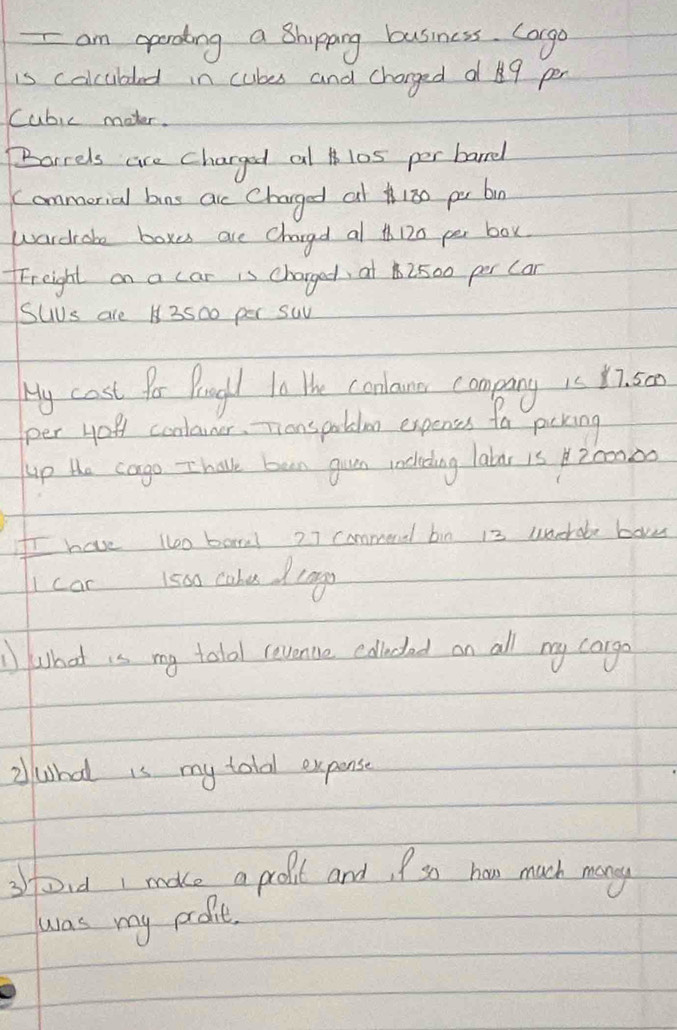 I am operating a Shipping business. Cargo
is calculated in cubes and charged at $9 per
Cubic meter.
Barrels are Charged at $105 per barrel
Commerial bins are Charged at $180 per bin
Wardrobe boxes are Charged at $120 per box
Freight on a car is Charged, at $2500 per Car
SUVs are $3500 per SUV
My cost for freight to the container company is $7.500
per 40ft container. Transportation expenses for picking
up the cargo I have been given including labar is $2000.00
I have 160 barrel 27 commercial bin 13 wardrobe boxes
1 car 1500 cubes of cargo
1) What is my total revenue collected on all my cargo
2) What is my total expense
3) Did I make a profit and if so how much money
was my profit.